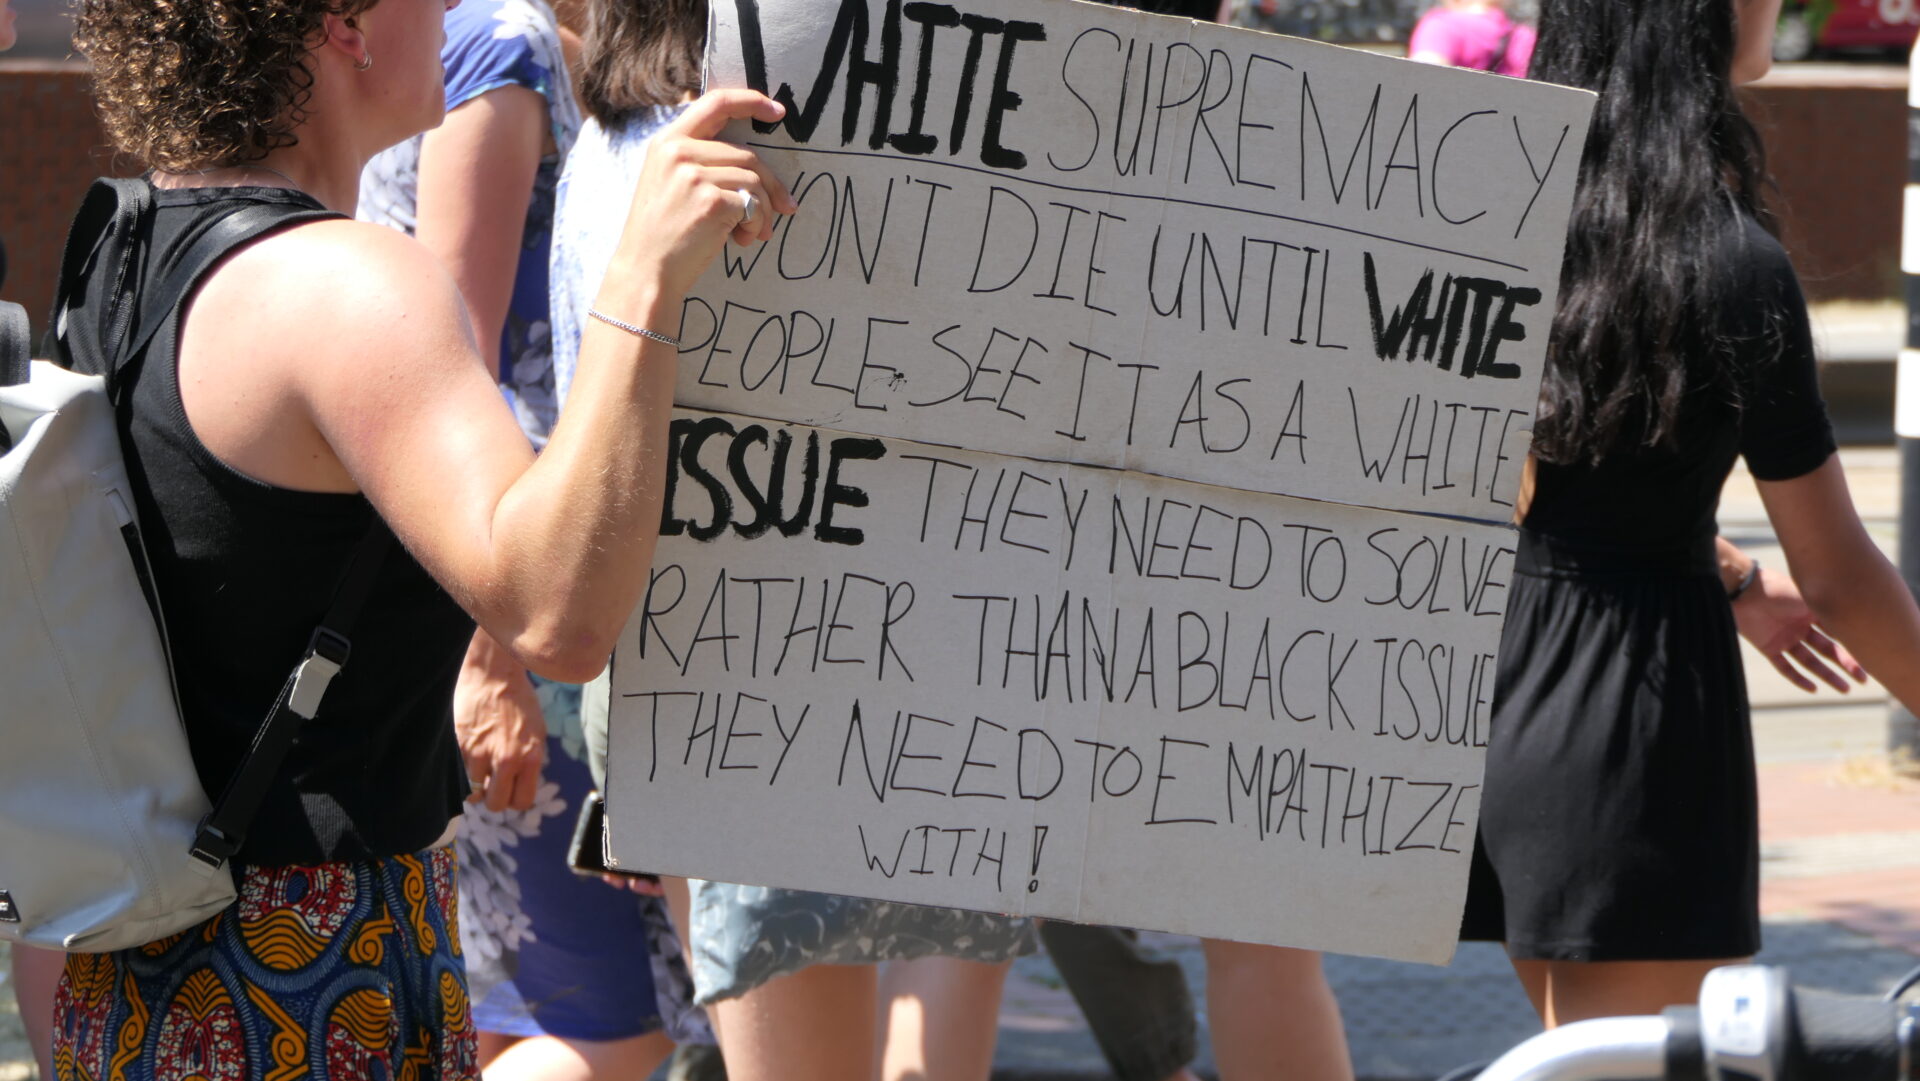 WHITE SUPREMACY
WON'T DIE UNTIL WHITE
PEOPLE SEE IT AS A WHITE
ISSUE THEY NEED TO SOLVE
RATHER THAN A BLACK ISSUE
THEY NEED TO EMPATHIZE
WITH!